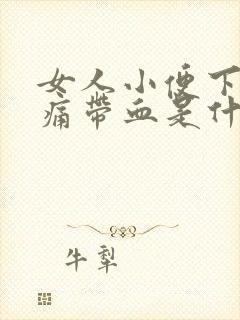 女人小便下
痛带血是什
牛犁